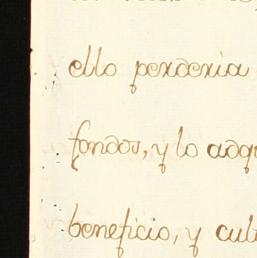 ello perderia
fondos, y lo adq
beneficio, y cul